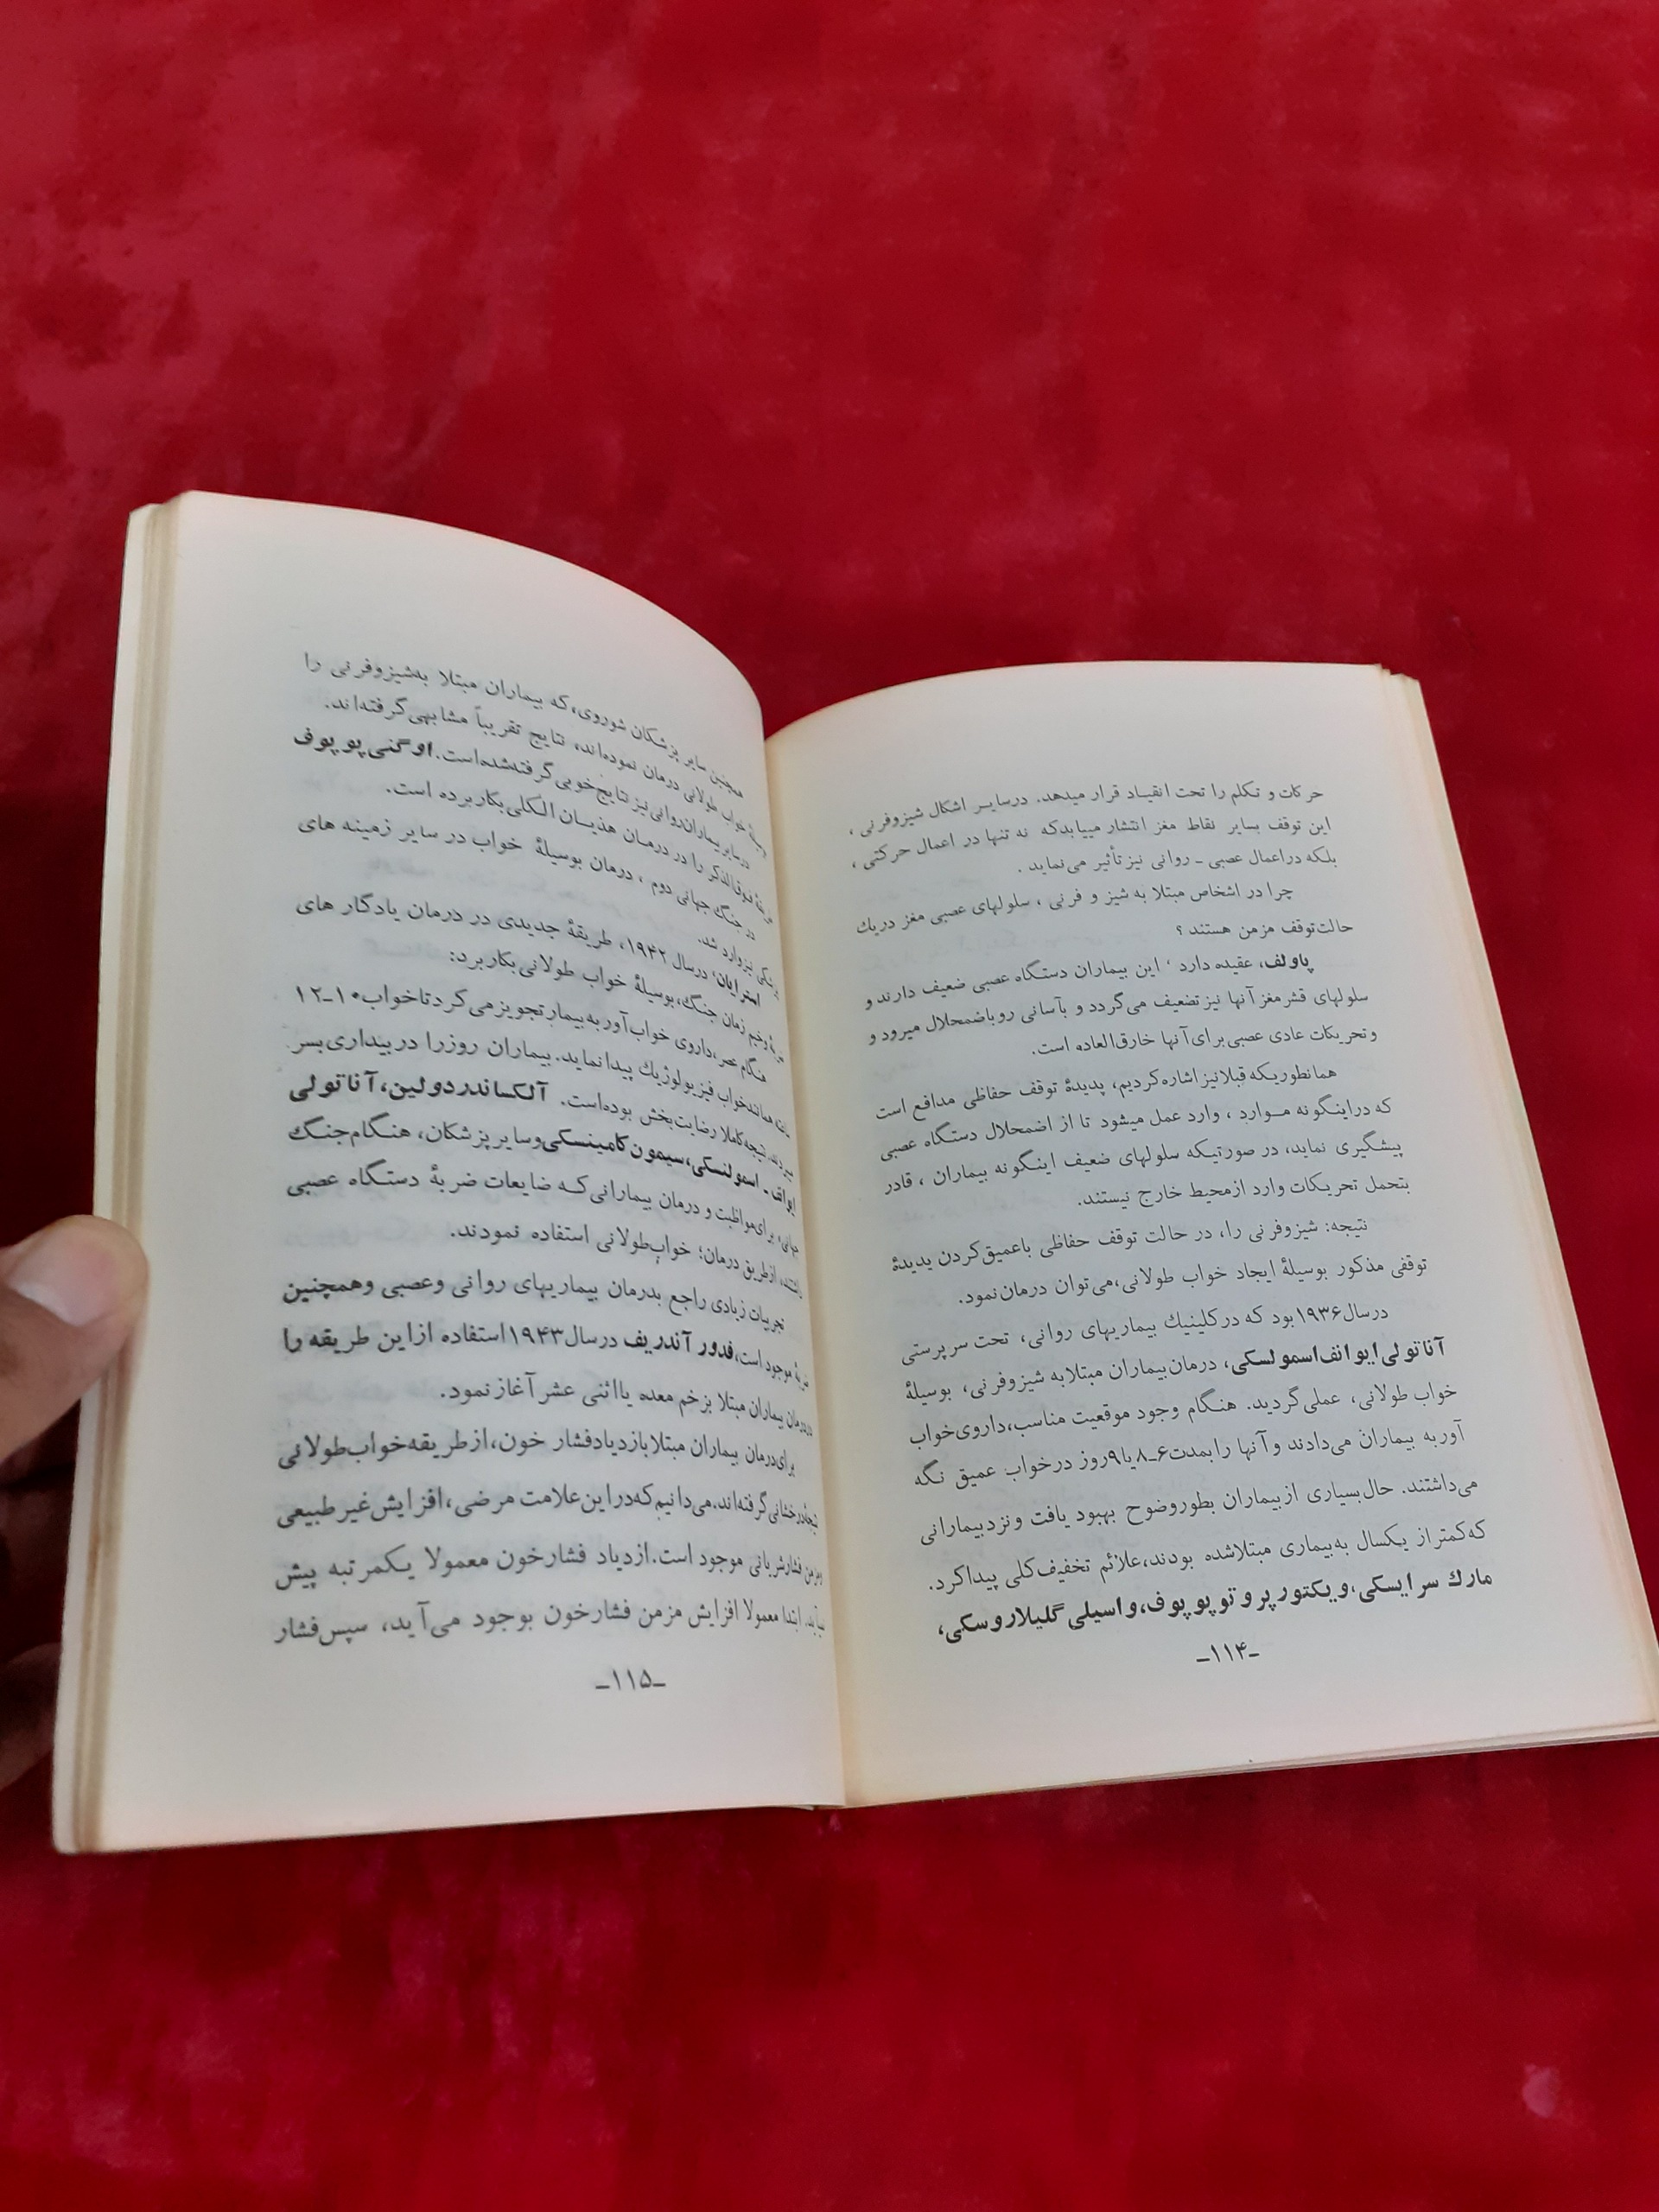 حرکات و تکلم را تحت انقیاد قرار میدهد. درسایر اشکال شیزوفرنی ،
این توقف بسایر نقاط مغز انتشار مییابدکه نه تنها در اعمال حرکتی ،
بلکه دراعمال عصبی ـ روانی نیز تأثیر می‌نماید .
چرا در اشخاص مبتلا به شیز و فرنی ، سلولهای عصبی مغز دریك
حالت‌توقف مزمن هستند ؟
پاولف، عقیده دارد ، این بیماران دستگاه عصبی ضعیف دارند و
سلولهای قشرمغز آنها نیز تضعیف می‌گردد و بآسانی روباضمحلال میرود و
وتحریکات عادی عصبی برای آنها خارق‌العاده است.
همانطوریکه قبلا نیز اشاره کردیم، پدیدهٔ توقف حفاظی مدافع است
که دراینگونه موارد ، وارد عمل میشود تا از اضمحلال دستگاه عصبی
پیشگیری نماید، در صورتیکه سلولهای ضعیف اینگونه بیماران ، قادر
بتحمل تحریکات وارد ازمحیط خارج نیستند.
نتیجه: شیزوفرنی را، در حالت توقف حفاظی باعمیق‌کردن پدیدهٔ
توقفی مذکور بوسیلهٔ ایجاد خواب طولانی،می‌توان درمان‌نمود.
درسال۱۹۳۶بود که درکلینیك بیماریهای روانی، تحت سرپرستی
آناتولی‌ایوانف‌اسمولسکی، درمان‌بیماران مبتلابه شیزوفرنی، بوسیلهٔ
خواب طولانی، عملی‌گردید. هنگام وجود موقعیت مناسب،داروی‌خواب
آوربه بیماران می‌دادند و آنها را بمدت۶ـ۸یا۹روز درخواب عمیق نگه
می‌داشتند. حال‌بسیاری ازبیماران بطوروضوح بهبود یافت و نزد بیمارانی
که‌کمتر از یکسال به‌بیماری مبتلاشده بودند،علائم تخفیف‌کلی پیداکرد.
مارك سرایسکی،ویکتورپروتوپوپوف،واسیلی گلیلاروسکی،
ـ۱۱۴ـ
همچنین سایر پزشکان شوروی،که بیماران مبتلا به‌شیزوفرنی را
خواب طولانی درمان نموده‌اند، نتایج تقریباً مشابهی‌گرفته‌اند.
درسایربیماران‌روانی‌نیز نتایج‌خوبی‌گرفته‌شده‌است.اوگنی‌پوپوف
فوق‌الذکر را در درمان هذیان الکلی‌بکاربرده است.
در جنگ جهانی دوم ، درمان بوسیلهٔ خواب در سایر زمینه های
پزشکی نیزوارد شد.
استرایان، درسال ۱۹۴۲، طریقهٔ جدیدی در درمان یادگار های
وخیم زمان جنگ،بوسیلهٔ خواب طولانی‌بکاربرد:
هنگام عصر،داروی خواب‌آور به‌بیمار تجویز می‌کرد تاخواب۱۰ـ۱۲
همانندخواب فیزیولوژیك پیدا نماید. بیماران روزرا دربیداری‌بسر
میبردند. نتیجه‌کاملا رضایت‌بخش بوده‌است. آلکساندردولین،آناتولی
ایوانف ـ اسمولنسکی،سیمون‌کامینسکی‌وسایرپزشکان، هنگام‌جنگ
جهانی، برای‌مواظبت و درمان بیمارانی‌که ضایعات ضربهٔ دستگاه عصبی
داشتند، ازطریق درمان؛ خواب‌طولانی استفاده نمودند.
تجربیات زیادی راجع بدرمان بیماریهای روانی وعصبی وهمچنین
ضربهٔ موجود است،فدور آندریف درسال۱۹۴۳استفاده ازاین طریقه را
دردرمان بیماران مبتلا بزخم معده یااثنی عشر آغازنمود.
برای‌درمان بیماران مبتلاباازدیادفشار خون،ازطریقه‌خواب‌طولانی
درخشانی‌گرفته‌اند.می‌دانیم‌که‌دراین‌علامت مرضی،افزایش‌غیرطبیعی
ومزمن فشارشریانی موجود است.ازدیاد فشارخون معمولا یکمرتبه پیش
نمیآید. ابتدا معمولا افزایش مزمن فشارخون بوجود می‌آید، سپس‌فشار
ـ۱۱۵ـ